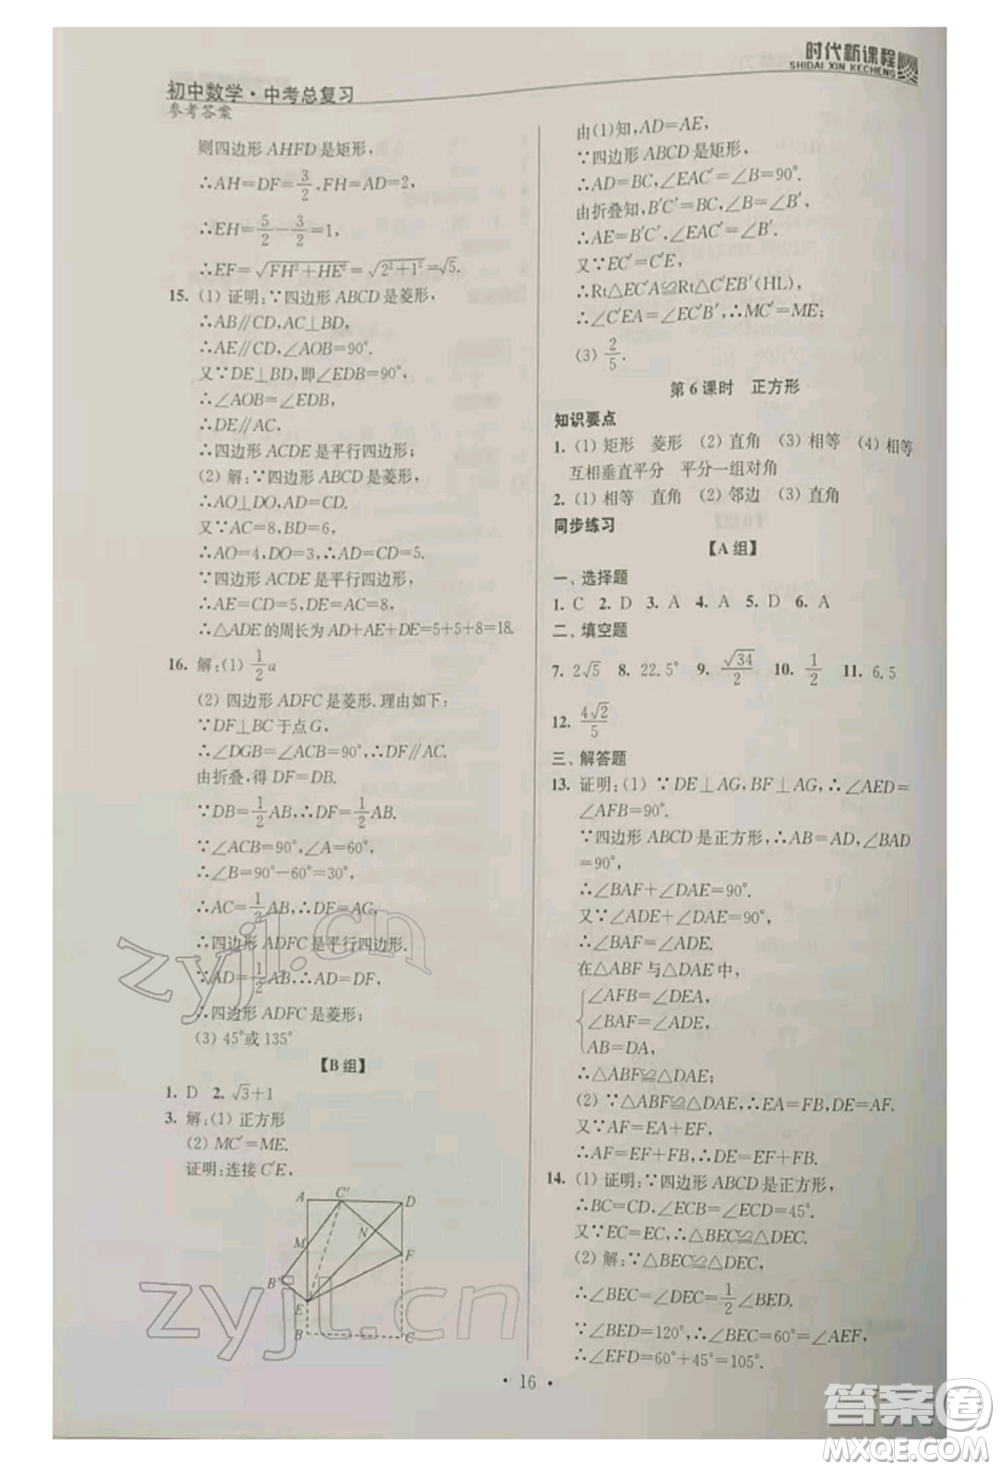 时代新课程
SHIDAI XIN KECHENG
初中数学·中考总复习
参考答案
则四边形 AHFD 是矩形,
∴AH=DF=3/2,FH=AD=2,
∴EH=5/2-3/2=1,
∴EF=√(FH²+HE²)=√(2²+1²)=√5.
15. (1) 证明:∵四边形 ABCD 是菱形,
∴AB∥CD,AC⊥BD,
∴AE∥CD,∠AOB=90°.
又∵DE⊥BD,即∠EDB=90°,
∴∠AOB=∠EDB,
∴DE∥AC,
∴四边形 ACDE 是平行四边形;
(2) 解:∵四边形 ABCD 是菱形,
∴AO⊥DO,AD=CD.
又∵AC=8,BD=6,
∴AO=4,DO=3,∴AD=CD=5.
∵四边形 ACDE 是平行四边形,
∴AE=CD=5,DE=AC=8,
∴△ADE 的周长为 AD+AE+DE=5+5+8=18.
16. 解:(1) 1/2 a
(2) 四边形 ADFC 是菱形.理由如下:
∵DF⊥BC 于点 G,
∴∠DGB=∠ACB=90°,∴DF∥AC.
由折叠,得 DF=DB.
∵DB=1/2 AB,∴DF=1/2 AB.
∵∠ACB=90°,∠A=60°,
∴∠B=90°-60°=30°,
∴AC=1/2 AB,∴AC=DF,
∴四边形 ADFC 是平行四边形.
∵AD=1/2 AB,∴AD=DF,
∴四边形 ADFC 是菱形;
(3) 45°或 135°
【B 组】
1. D 2. √3+1
3. 解:(1) 正方形
(2) MC′=ME.
证明:连接 C′E,
A C′ D
N
M
F
B′
E
B C
由(1)知,AD=AE,
∵四边形 ABCD 是矩形,
∴AD=BC,∠EAC′=∠B=90°.
由折叠知,B′C′=BC,∠B=∠B′,
∴AE=B′C′,∠EAC′=∠B′.
又∵EC′=C′E,
∴Rt△EC′A≌Rt△C′EB′(HL),
∴∠C′EA=∠EC′B′,∴MC′=ME;
(3) 2/5.
第 6 课时 正方形
知识要点
1. (1) 矩形 菱形 (2) 直角 (3) 相等 (4) 相等
互相垂直平分 平分一组对角
2. (1) 相等 直角 (2) 邻边 (3) 直角
同步练习
【A 组】
一、选择题
1. C 2. D 3. A 4. A 5. D 6. A
二、填空题
7. 2√5 8. 22.5° 9. √34/2 10. 1/2 11. 6.5
12. 4√2/5
三、解答题
13. 证明:(1) ∵DE⊥AG,BF⊥AG,∴∠AED=
∠AFB=90°.
∵四边形 ABCD 是正方形,∴AB=AD,∠BAD
=90°,
∴∠BAF+∠DAE=90°.
又∵∠ADE+∠DAE=90°,
∴∠BAF=∠ADE.
在△ABF 与△DAE 中,
∠AFB=∠DEA,
∠BAF=∠ADE,
AB=DA,
∴△ABF≌△DAE;
(2) ∵△ABF≌△DAE,∴AE=FB,DE=AF.
又∵AF=AE+EF,
∴AF=BF+EF,∴DE=BF+EF.
14. (1) 证明:∵四边形 ABCD 是正方形,
∴BC=CD,∠ECB=∠ECD=45°.
又∵EC=EC,∴△BEC≌△DEC;
(2) 解:∵△BEC≌△DEC,
∴∠BEC=∠DEC=1/2∠BED.
∵∠BED=120°,∴∠BEC=60°=∠AEF,
∴∠EFD=60°+45°=105°.
· 16 ·
zyjl.cn
zyjl.cn
答案圈
MXQE.COM